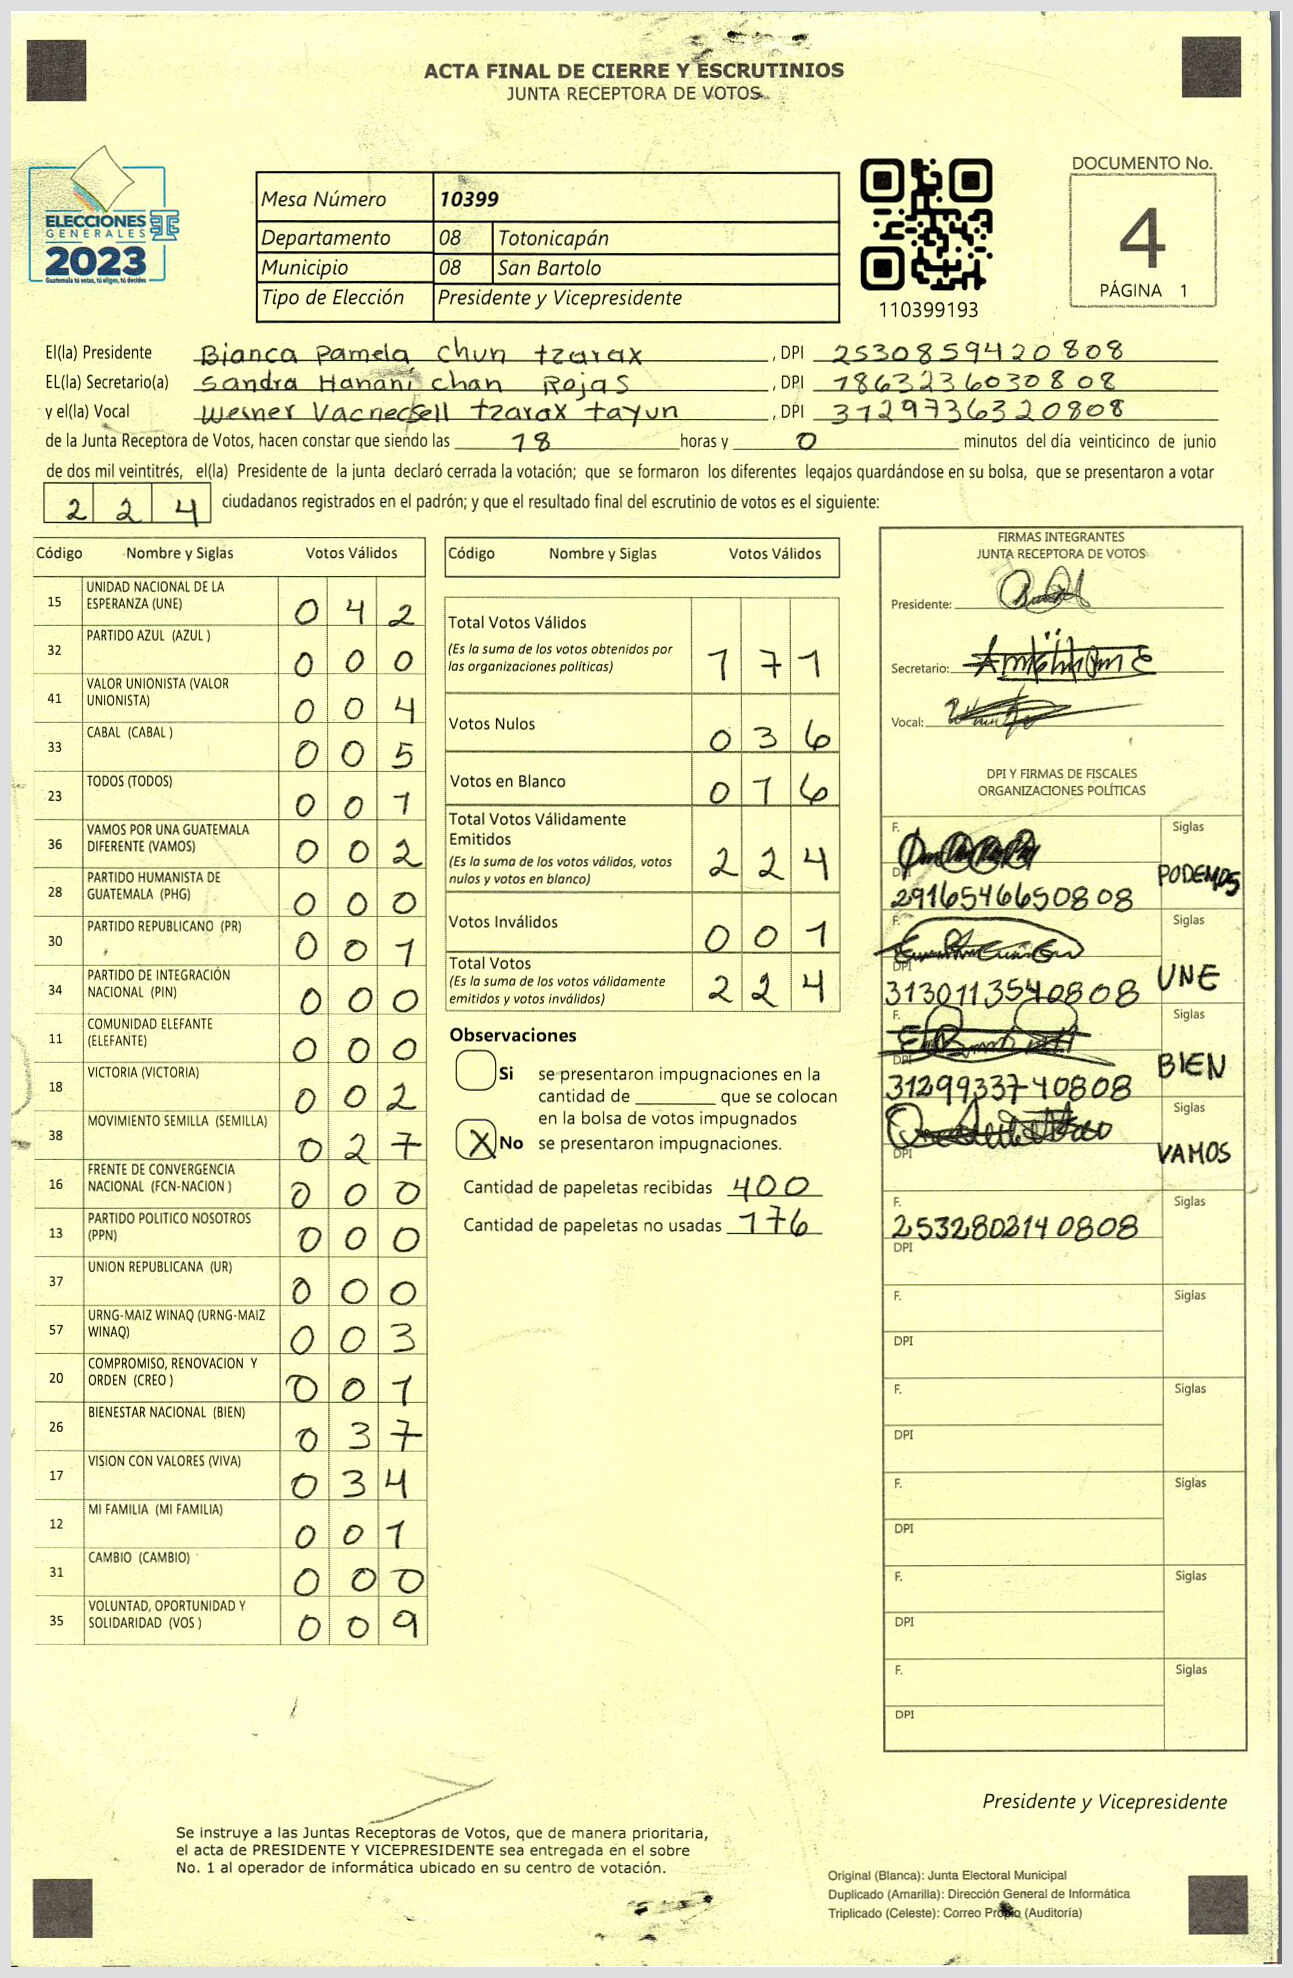 ACTA FINAL DE CIERRE Y ESCRUTINIOS
JUNTA RECEPTORA DE VOTOS
ELECCIONES
GENERALES
2023
Guatemala tú votas, tú eliges, tú decides
Mesa Número 10399
Departamento 08 Totonicapán
Municipio 08 San Bartolo
Tipo de Elección Presidente y Vicepresidente
110399193
DOCUMENTO No.
4
PÁGINA 1
El(la) Presidente Bianca Pamela Chun tzarax , DPI 2530859420808
EL(la) Secretario(a) Sandra Hananí Chan Rojas , DPI 1863236030808
y el(la) Vocal tzarax tayun , DPI 3129736320808
de la Junta Receptora de Votos, hacen constar que siendo las 18 horas y 0 minutos del día veinticinco de junio
de dos mil veintitrés, el(la) Presidente de la junta declaró cerrada la votación; que se formaron los diferentes legajos guardándose en su bolsa, que se presentaron a votar
224 ciudadanos registrados en el padrón; y que el resultado final del escrutinio de votos es el siguiente:
Código Nombre y Siglas Votos Válidos
15 UNIDAD NACIONAL DE LA ESPERANZA (UNE) 042
32 PARTIDO AZUL (AZUL ) 000
41 VALOR UNIONISTA (VALOR UNIONISTA) 004
33 CABAL (CABAL ) 005
23 TODOS (TODOS) 001
36 VAMOS POR UNA GUATEMALA DIFERENTE (VAMOS) 002
28 PARTIDO HUMANISTA DE GUATEMALA (PHG) 000
30 PARTIDO REPUBLICANO (PR) 001
34 PARTIDO DE INTEGRACIÓN NACIONAL (PIN) 000
11 COMUNIDAD ELEFANTE (ELEFANTE) 000
18 VICTORIA (VICTORIA) 002
38 MOVIMIENTO SEMILLA (SEMILLA) 027
16 FRENTE DE CONVERGENCIA NACIONAL (FCN-NACION ) 000
13 PARTIDO POLITICO NOSOTROS (PPN) 000
37 UNION REPUBLICANA (UR) 000
57 URNG-MAIZ WINAQ (URNG-MAIZ WINAQ) 003
20 COMPROMISO, RENOVACION Y ORDEN (CREO ) 001
26 BIENESTAR NACIONAL (BIEN) 037
17 VISION CON VALORES (VIVA) 034
12 MI FAMILIA (MI FAMILIA) 001
31 CAMBIO (CAMBIO) 000
35 VOLUNTAD, OPORTUNIDAD Y SOLIDARIDAD (VOS ) 009
Código Nombre y Siglas Votos Válidos
Total Votos Válidos 171
(Es la suma de los votos obtenidos por
las organizaciones políticas)
Votos Nulos 036
Votos en Blanco 016
Total Votos Válidamente
Emitidos 224
(Es la suma de los votos válidos, votos
nulos y votos en blanco)
Votos Inválidos 001
Total Votos 224
(Es la suma de los votos válidamente
emitidos y votos inválidos)
Observaciones
Si se presentaron impugnaciones en la
cantidad de ________ que se colocan
en la bolsa de votos impugnados
X No se presentaron impugnaciones.
Cantidad de papeletas recibidas 400
Cantidad de papeletas no usadas 176
FIRMAS INTEGRANTES
JUNTA RECEPTORA DE VOTOS
Presidente:
Secretario:
Vocal:
DPI Y FIRMAS DE FISCALES
ORGANIZACIONES POLÍTICAS
F. Siglas
DPI 2916546650808 PODEMOS
F. Siglas
DPI 3130113540808 UNE
F. Siglas
DPI 3129933740808 BIEN
F. Siglas
DPI VAMOS
F. Siglas
2532802140808
DPI
F. Siglas
DPI
F. Siglas
DPI
F. Siglas
DPI
F. Siglas
DPI
F. Siglas
DPI
Presidente y Vicepresidente
Se instruye a las Juntas Receptoras de Votos, que de manera prioritaria,
el acta de PRESIDENTE Y VICEPRESIDENTE sea entregada en el sobre
No. 1 al operador de informática ubicado en su centro de votación.
Original (Blanca): Junta Electoral Municipal
Duplicado (Amarilla): Dirección General de Informática
Triplicado (Celeste): Correo Propio (Auditoría)